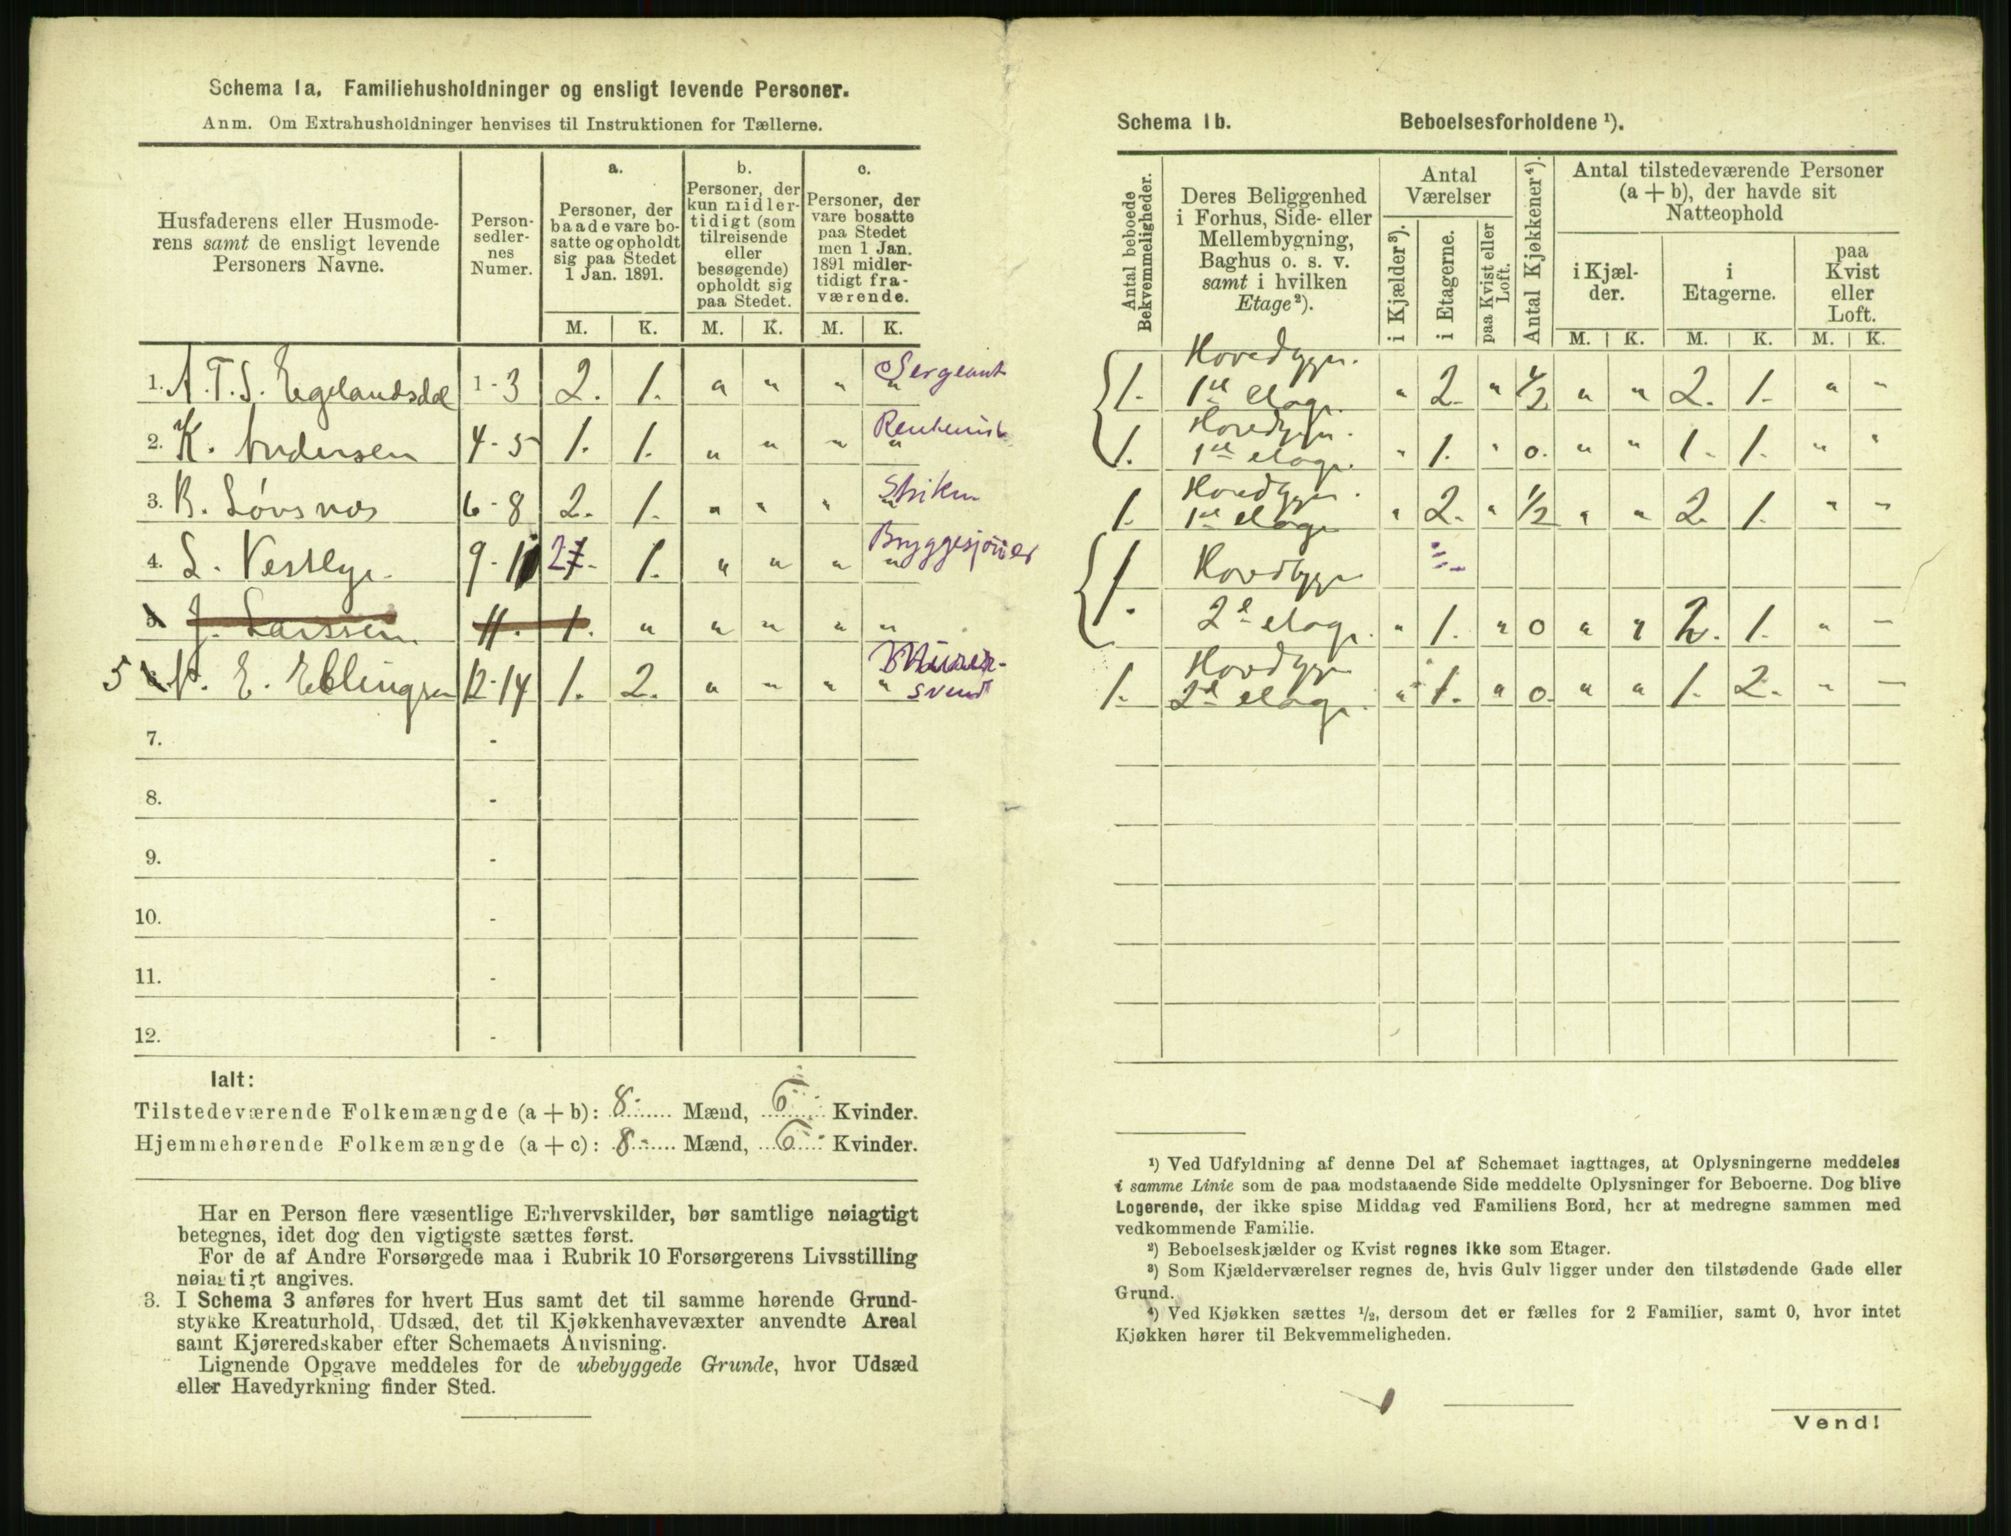 Schema 1a. Familiehusholdninger og ensligt levende Personer.
Anm. Om Extrahusholdninger henvises til Instruktionen for Tællerne.
Husfaderens eller Husmoderens samt de ensligt levende Personers Navne.
Personsedlernes Numer.
a. Personer, der baade vare bosatte og opholdt sig paa Stedet 1 Jan. 1891.
b. Personer, der kun midlertidigt (som tilreisende eller besøgende) opholdt sig paa Stedet.
c. Personer, der vare bosatte paa Stedet men 1 Jan. 1891 midlertidigt fraværende.
M. K. M. K. M. K.
1. A. T. S. Egelandsdal 1-3 2. 1. " " " " Sergeant
2. K. Andersen 4-5 1. 1. " " " "
3. B. Løvsnæs 6-8 2. 1. " " " "
4. L. Vestbye 9-11 2 1. " " " " Bryggesjouer
5 J. Larssen 11. 1. " " " " "
5 E. Ellingsen 12-14 1. 2. " " " " Murersvend
7. -
8. -
9. -
10. -
11. -
12. -
Ialt:
Tilstedeværende Folkemængde (a + b): 8 Mænd, 6 Kvinder.
Hjemmehørende Folkemængde (a + c): 8 Mænd, 6 Kvinder.
Har en Person flere væsentlige Erhvervskilder, bør samtlige nøiagtigt
betegnes, idet dog den vigtigste sættes først.
For de af Andre Forsørgede maa i Rubrik 10 Forsørgerens Livsstilling
nøiagtigt angives.
3. I Schema 3 anføres for hvert Hus samt det til samme hørende Grund-
stykke Kreaturhold, Udsæd, det til Kjøkkenhavevæxter anvendte Areal
samt Kjøreredskaber efter Schemaets Anvisning.
Lignende Opgave meddeles for de ubebyggede Grunde, hvor Udsæd
eller Havedyrkning finder Sted.
Schema 1b. Beboelsesforholdene ¹).
Antal beboede Bekvemmeligheder.
Deres Beliggenhed i Forhus, Side- eller Mellembygning, Baghus o. s. v. samt i hvilken Etage ²).
Antal Værelser
i Kjælder ³). i Etagerne. paa Kvist eller Loft.
Antal Kjøkkener ⁴).
Antal tilstedeværende Personer (a + b), der havde sit Natteophold
i Kjælder. i Etagerne. paa Kvist eller Loft.
M. K. M. K. M. K.
1. Hovedbygn. 1ste etage " 2. " 1/2 " " 2. 1. " "
1. Hovedbygn. 1ste etage " 1. " 0. " " 1. 1. " "
1. Hovedbygn. 1ste etage " 2. " 1/2 " " 2. 1. " "
1. Hovedbygn
2d etage. " 1. " 0 " " 2. 1. " "
1. Hovedbygn 2d etage. " 1. " 0. " " 1. 2. " "
¹) Ved Udfyldning af denne Del af Schemaet iagttages, at Oplysningerne meddeles
i samme Linie som de paa modstaaende Side meddelte Oplysninger for Beboerne. Dog blive
Logerende, der ikke spise Middag ved Familiens Bord, her at medregne sammen med
vedkommende Familie.
²) Beboelseskjælder og Kvist regnes ikke som Etager.
³) Som Kjælderværelser regnes de, hvis Gulv ligger under den tilstødende Gade eller
Grund.
⁴) Ved Kjøkken sættes ½, dersom det er fælles for 2 Familier, samt 0, hvor intet
Kjøkken hører til Bekvemmeligheden.
Vend!